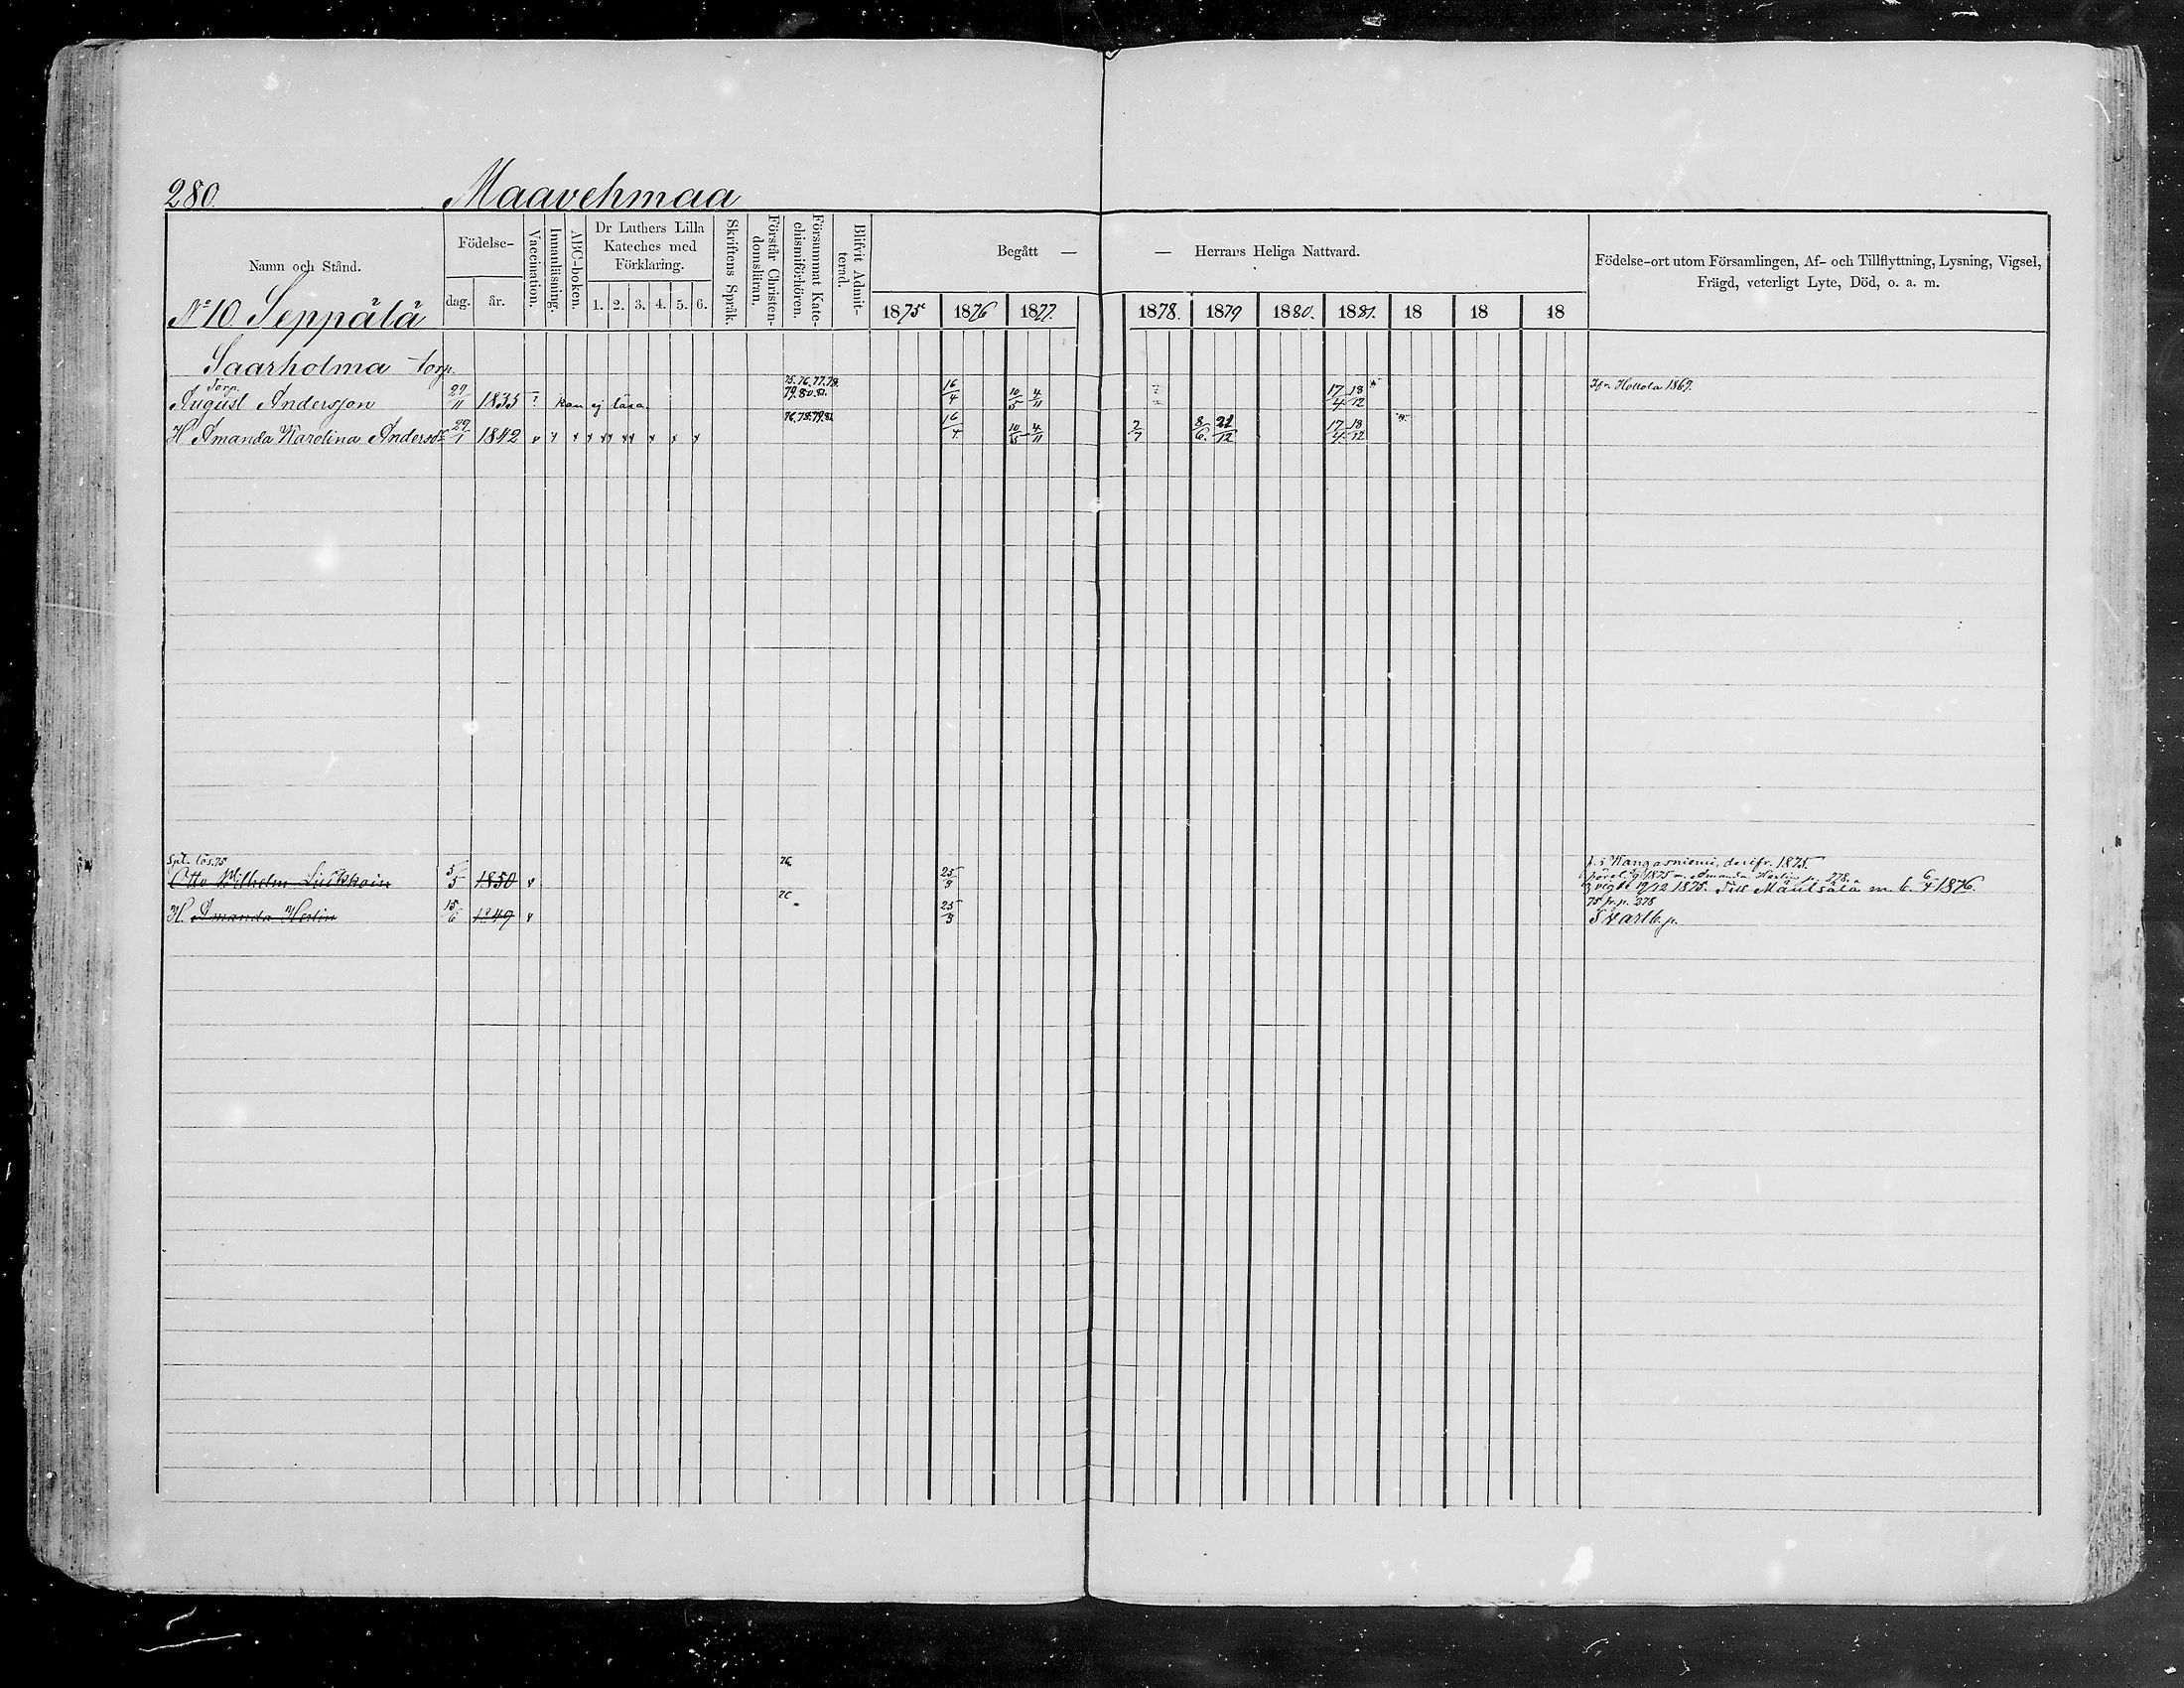 280. Maavehmaa
Namn och Stånd.
Födelse-
dag. år.
Vaccination.
Innanläsning.
ABC-boken.
Dr Luthers Lilla
Kateches med
Förklaring.
1. 2. 3. 4. 5. 6.
Skriftens Språk.
Förstår Christen-
domsläran.
Försummat Kate-
chismiförhören.
Blifvit Admit-
terad.
Begått — — Herrans Heliga Nattvard.
1875 1876 1877. 1878. 1879 1880. 1881. 18 18 18
Födelse-ort utom Församlingen, Af- och Tillflyttning, Lysning, Vigsel,
Frägd, veterligt Lyte, Död, o. a. m.
No 10 Seppälä
Saarholma torp.
Torp.
August Andersson 27/11 1835 ? kan ej läsa 75. 76. 77. 78. 79. 80. 81. 16/4 10/5 4/11 17/4 18/12 Ifr. Hollola 1869.
H Amanda Karolina Andersdr 29/1 1842 16/4 10/5 4/11 7/7 8/6 21/12 17/4 18/12
Spl. lös. 75
Otto Wilhelm Liukkoin 5/5 1850 v 76. 25/3 f. i Kangasniemi, derifr. 1875.
1875 m. Amanda Herlin p. 278.
vigde 19/12 1875. Till Mäntsälä m. b. 6/4 1876.
H. Amanda Herlin 15/6 1849 v 76 25/3 75 fr. p. 278
Svartb. p.